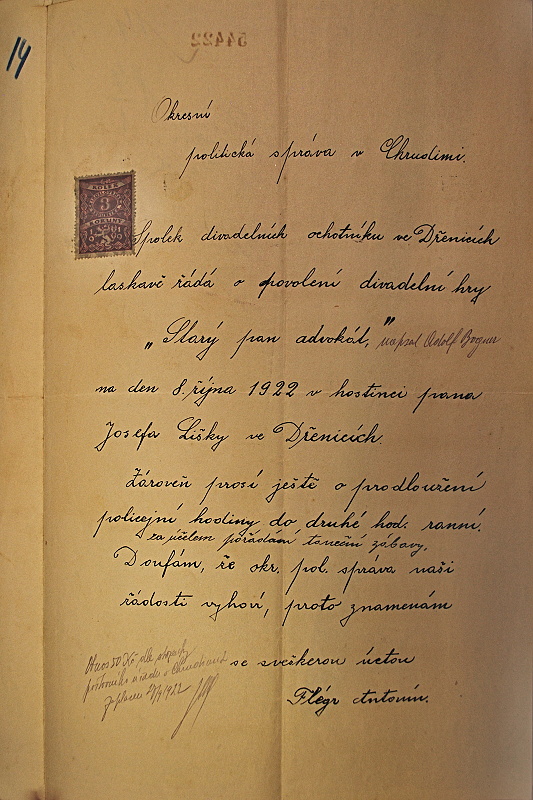 14
54422
Okresní
politická správa v Chrudimi.
KOLEK
3
KORUNY
Spolek divadelních ochotníku ve Dřenicích
laskavě řádá o povolení divadelní hry
„Starý pan advokát," napsal Adolf Bogner
na den 8. října 1922 v hostinci pana
Josefa Lišky ve Dřenicích.
Zároveň prosí ještě o prodloužení
policejní hodiny do druhé hod. ranní.
za učelem pořádání taneční zábavy.
Doufám, že okr. pol. správa naši
řádosti vyhoví, proto znamenám
se sveškerou úctou
Flégr Antonín.
50 Kč dle
poštovního úřadu v Chrudimi
1922